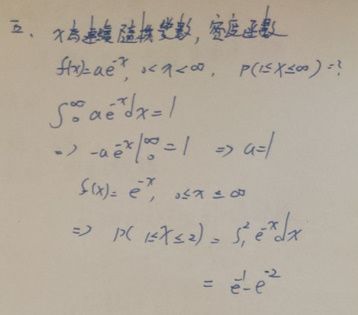 五、x为连续随机变数，密度函数
f(x)=ae^{-x}, 0<x<∞, P(1≤X≤∞)=?
∫_0^∞ ae^{-x}dx=1
=> -ae^{-x}|_0^∞=1 => a=1
f(x)=e^{-x}, 0≤x≤∞
=> P(1≤X≤2)=∫_1^2 e^{-x}dx
= e^{-1}-e^{-2}